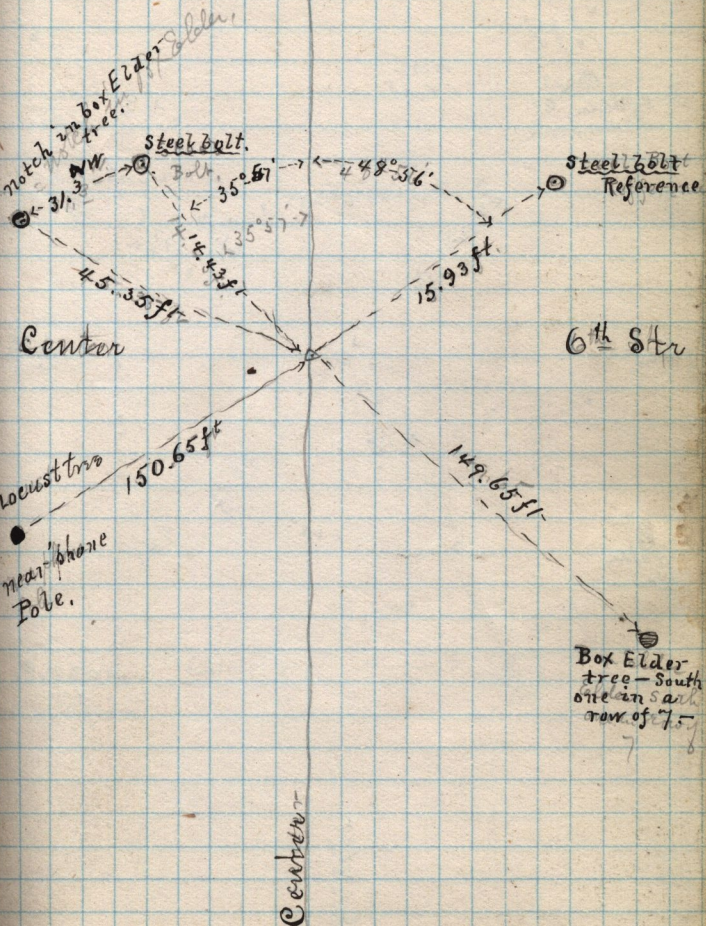 Notch in box Elder
tree.
Elder,
Steel bolt.
Bolt.
31.3
NW
35°57'
48°56'
Steel bolt
Reference
35°57'
14.43ft
15.93ft
45.35ft
Center
6th Str
Locust tree
150.65ft
149.65ft
near 'phone
Pole.
Box Elder
tree — South
one in a
row of 7.-
7
Center